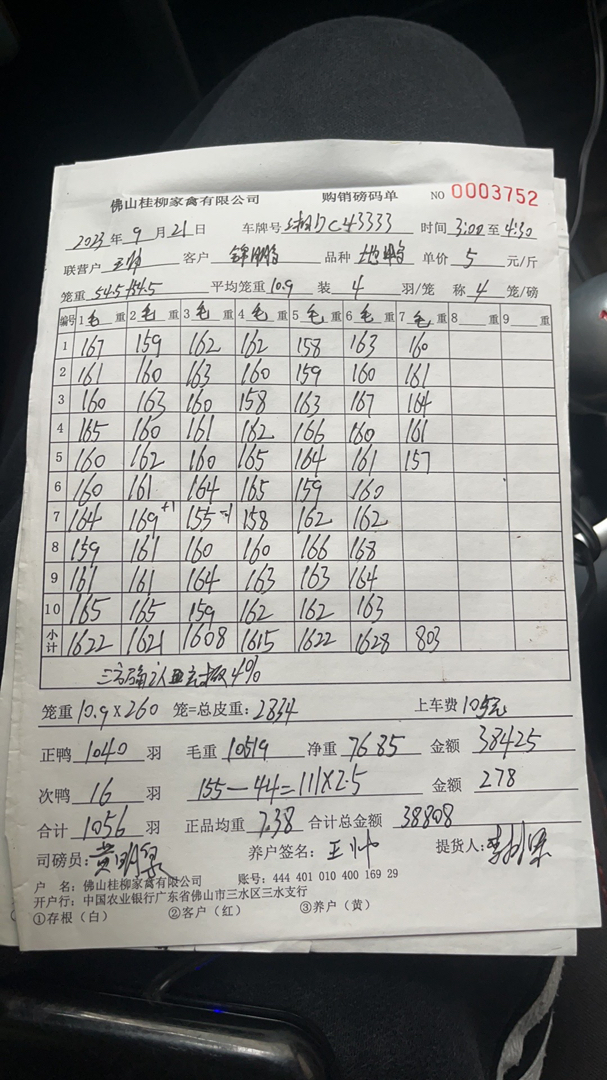 佛山桂柳家禽有限公司 购销磅码单 NO 0003752
2023年9月21日 车牌号 C43333 时间 3:00至4:30
联营户 王帅 客户 品种 单价 5 元/斤
笼重 54.5+54.5 平均笼重 10.9 装 4 羽/笼 称 4 笼/磅
编号 1毛重 2毛重 3毛重 4毛重 5毛重 6毛重 7毛重 8重 9重
1 167 159 162 162 158 163 160
2 161 160 163 160 159 160 161
3 160 163 160 158 163 167 164
4 165 160 161 162 166 160 161
5 160 162 160 165 164 161 157
6 160 161 164 165 159 160
7 164 169+1 155-1 158 162 162
8 159 161 160 160 166 168
9 161 161 164 163 163 164
10 165 165 159 162 162 163
小计 1622 1621 1608 1615 1622 1628 803
三方确认 4%
笼重 10.9×260 笼=总皮重: 2834 上车费 105元
正鸭 1040 羽 毛重 10519 净重 7685 金额 38425
次鸭 16 羽 155-44=111×2.5 金额 278
合计 1056 羽 正品均重 7.38 合计总金额 38808
司磅员: 黄明 养户签名: 王帅 提货人: 李
户 名: 佛山桂柳家禽有限公司 账号: 444 401 010 400 169 29
开户行: 中国农业银行广东省佛山市三水区三水支行
①存根（白） ②客户（红） ③养户（黄）